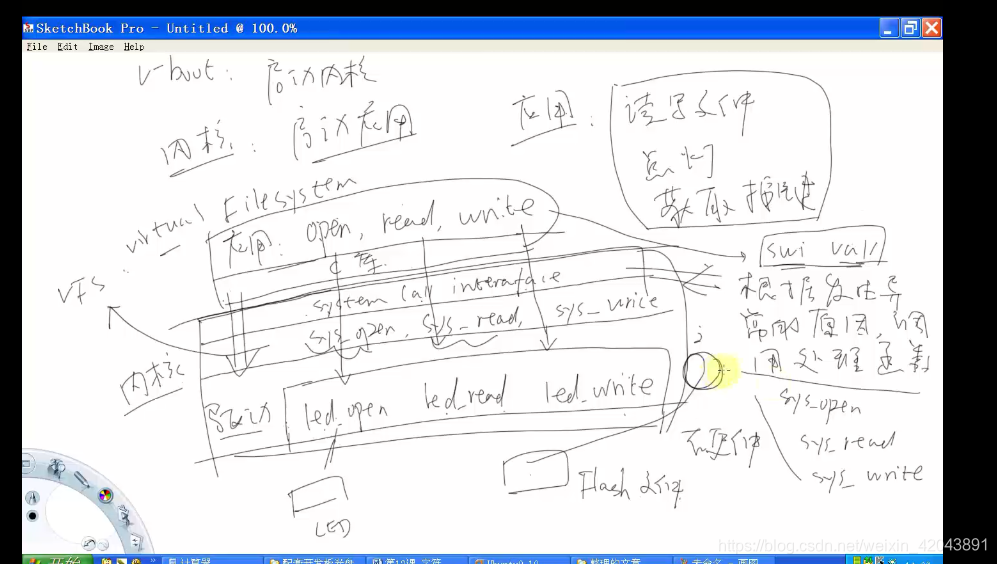 SketchBook Pro - Untitled @ 100.0%
File Edit Image Help
u-boot: 启动内核
内核: 启动应用
应用:
读写文件
点灯
获取按键
virtual Filesystem
VFS:
应用: open, read, write
C库
swi val
system call interaface
sys_open, sys_read, sys_write
内核
根据发生异
常的原因, 调
用处理函数
sys_open
sys_read
sys_write
驱动
led_open led_read led_write
硬件
LED
Flash 文件
开始
计算器
https://blog.csdn.net/weixin_42043891